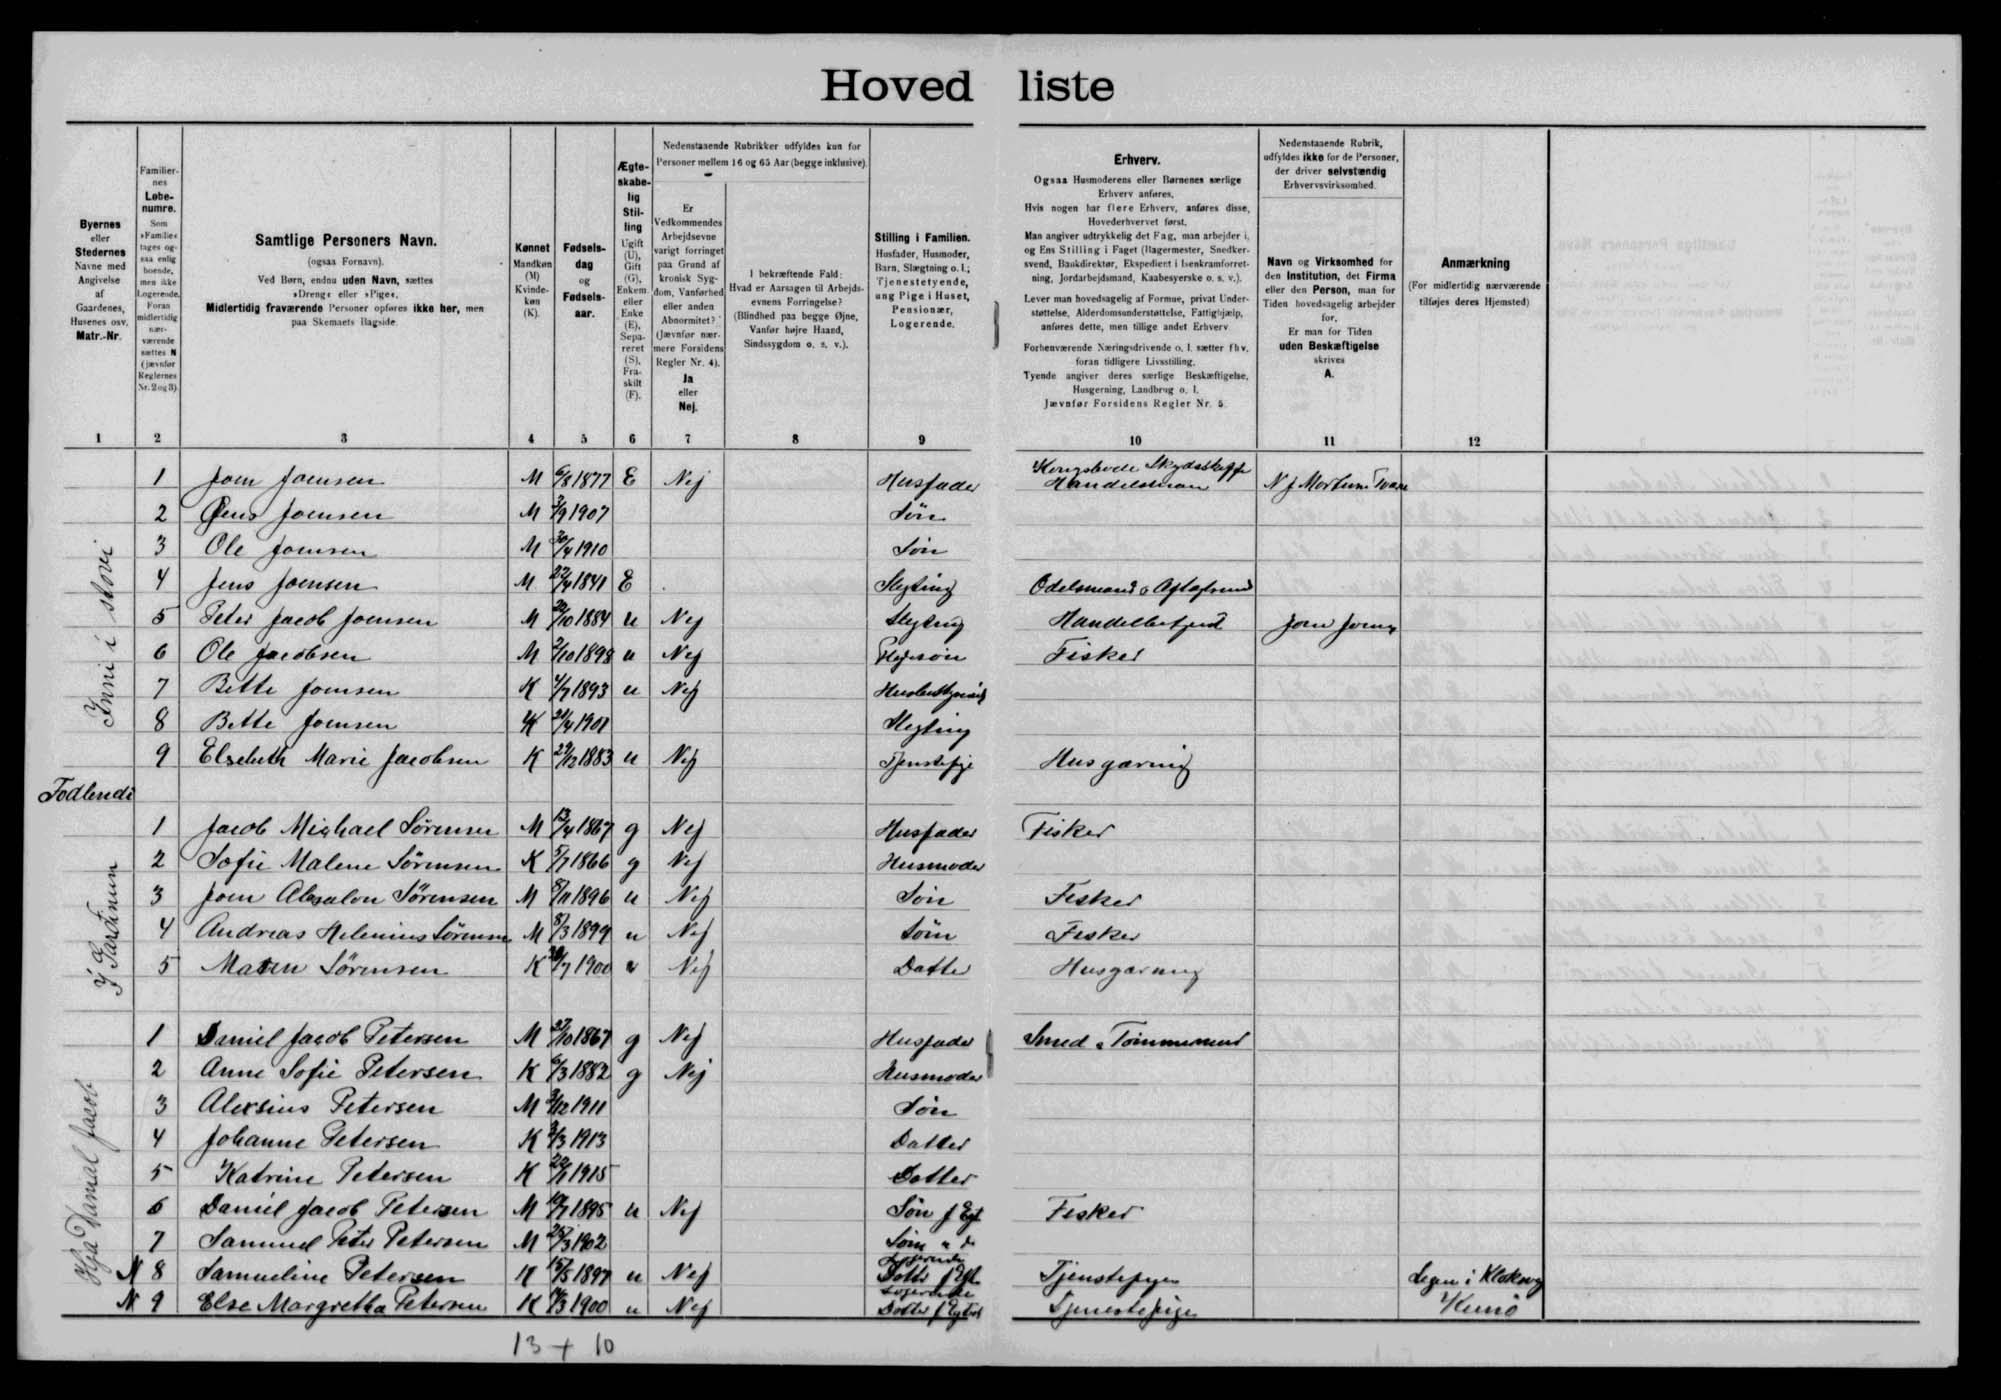 Hovedliste
Byernes
eller
Stedernes
Navne med
Angivelse
af
Gaardenes,
Husenes osv.
Matr.-Nr.
Familier-
nes
Løbe-
numre.
Som
»Familie«
tages og-
saa enlig
boende,
men ikke
Logerende.
Foran
midlertidig
nær-
værende
sættes N
(jævnfør
Reglernes
Nr. 2 og 3).
Samtlige Personers Navn.
(ogsaa Fornavn).
Ved Børn, endnu uden Navn, sættes
»Dreng« eller »Pige«.
Midlertidig fraværende Personer opføres ikke her, men
paa Skemaets Bagside.
Kønnet
Mandkøn
(M)
Kvinde-
køn
(K).
Fødsels-
dag
og
Fødsels-
aar.
Ægte-
skabe-
lig
Stil-
ling
Ugift
(U),
Gift
(G),
Enkem.
eller
Enke
(E),
Sepa-
reret
(S),
Fra-
skilt
(F).
Nedenstaaende Rubrikker udfyldes kun for
Personer mellem 16 og 65 Aar (begge inklusive).
Er
Vedkommendes
Arbejdsevne
varigt forringet
paa Grund af
kronisk Syg-
dom, Vanførhed
eller anden
Abnormitet?
(Jævnfør nær-
mere Forsidens
Regler Nr. 4).
Ja
eller
Nej.
I bekræftende Fald:
Hvad er Aarsagen til Arbejds-
evnens Forringelse?
(Blindhed paa begge Øjne,
Vanfør højre Haand,
Sindssygdom o. s. v.).
Stilling i Familien.
Husfader, Husmoder,
Barn, Slægtning o. l.;
Tjenestetyende,
ung Pige i Huset,
Pensionær,
Logerende.
Erhverv.
Ogsaa Husmoderens eller Børnenes særlige
Erhverv anføres.
Hvis nogen har flere Erhverv, anføres disse,
Hovederhvervet først.
Man angiver udtrykkelig det Fag, man arbejder i,
og Ens Stilling i Faget (Bagermester, Snedker-
svend, Bankdirektør, Ekspedient i Isenkramforret-
ning, Jordarbejdsmand, Kaabesyerske o. s. v.).
Lever man hovedsagelig af Formue, privat Under-
støttelse, Alderdomsunderstøttelse, Fattighjælp,
anføres dette, men tillige andet Erhverv
Forhenværende Næringsdrivende o. l. sætter fhv.
foran tidligere Livsstilling.
Tyende angiver deres særlige Beskæftigelse,
Husgerning, Landbrug o. l.
Jævnfør Forsidens Regler Nr. 5.
Nedenstaaende Rubrik,
udfyldes ikke for de Personer,
der driver selvstændig
Erhvervsvirksomhed.
Navn og Virksomhed for
den Institution, det Firma
eller den Person, man for
Tiden hovedsagelig arbejder
for.
Er man for Tiden
uden Beskæftigelse
skrives
A.
Anmærkning
(For midlertidig nærværende
tilføjes deres Hjemsted)
1 2 3 4 5 6 7 8 9 10 11 12
Inni i stovi
1 Joen Joensen M 6/8 1877 E Nej Husfader Handelsman
2 Jens Joensen M 2/9 1907 Søn
3 Ole Joensen M 30/4 1910 Søn
4 Jens Joensen M 22/4 1841 E Slegtning Odelsmand
5 Peter Jacob Joensen M 20/10 1884 u Nej Slegtning
6 Ole Jacobsen M 2/10 1898 u Nej Plejesøn Fisker
7 Bette Joensen K 4/7 1893 u Nej
8 Bette Joensen K 21/4 1901 Slegtning
9 Elsebeth Marie Jacobsen K 29/12 1883 u Nej Tjenstepije Husgærning
1 Jacob Mighael Sørensen M 13/4 1867 g Nej Husfader Fisker
2 Sofie Malene Sørensen K 5/7 1866 g Nej Husmoder
3 Joen Absalon Sørensen M 8/11 1896 u Nej Søn Fisker
4 Andreas Helenius Sørensen M 8/3 1899 u Nej Søn Fisker
5 Maren Sørensen K 1900 u Nej Datter Husgærning
Hja Danial Jacob
1 Daniel Jacob Petersen M 27/10 1867 g Nej Husfader Smed o Tømmermand
2 Anne Sofie Petersen K 6/3 1882 g Nej Husmoder
3 Alexsius Petersen M 3/12 1911 Søn
4 Johanne Petersen K 3/3 1913 Datter
5 Katrine Petersen K 22/1 1915 Datter
6 Daniel Jacob Petersen M 10/7 1895 u Nej Søn f Egt Fisker
7 Sammuel Peter Petersen M 25/3 1902 Søn " do
N 8 Samueline Petersen K 15/5 1897 u Nej Logerende Datter f Egt Tjenstepije
N 9 Else Margretha Petersen K 1900 u Nej Logerende Datter f Egt Tjenestepige Kunø
13 + 10